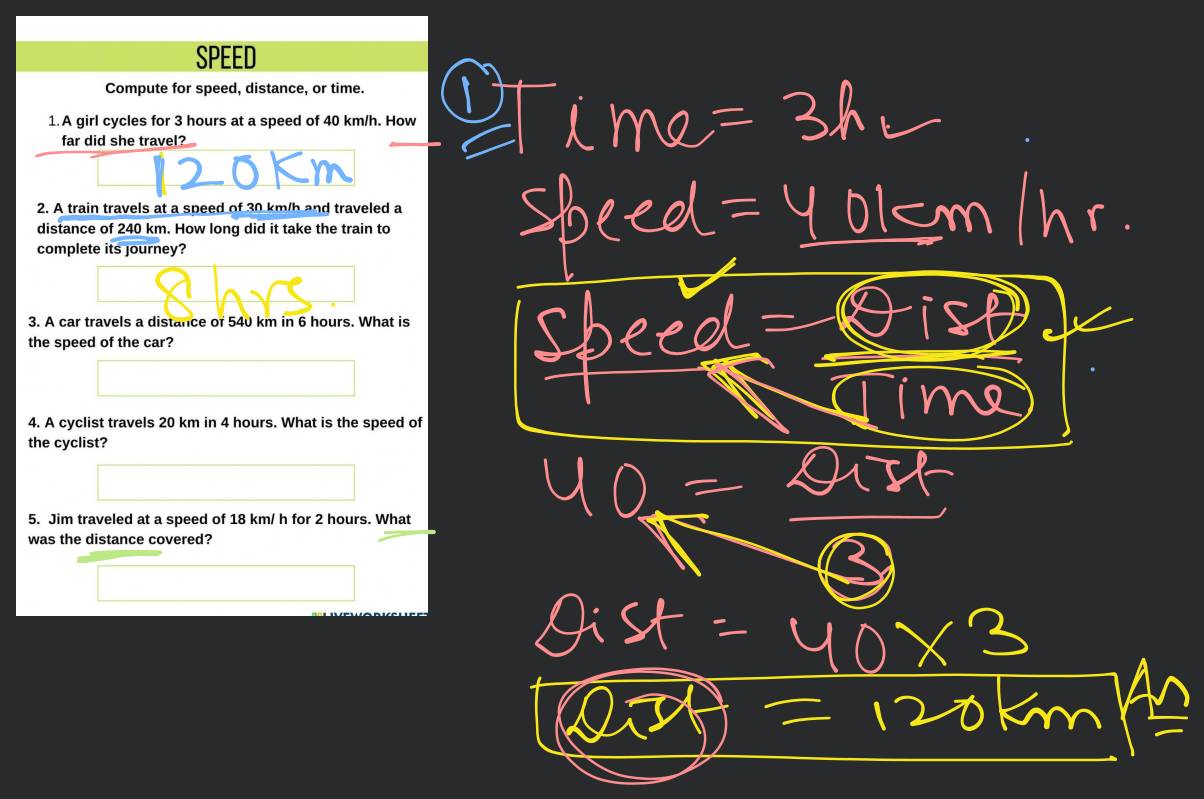 SPEED
Compute for speed, distance, or time.
1. A girl cycles for 3 hours at a speed of 40 km/h. How
far did she travel?
120 Km
2. A train travels at a speed of 30 km/h and traveled a
distance of 240 km. How long did it take the train to
complete its journey?
8 hrs.
3. A car travels a distance of 540 km in 6 hours. What is
the speed of the car?
4. A cyclist travels 20 km in 4 hours. What is the speed of
the cyclist?
5. Jim traveled at a speed of 18 km/ h for 2 hours. What
was the distance covered?
1 Time = 3hr
Speed = 40km/hr.
Speed = Dist
Time
40 = Dist
3
Dist = 40 X 3
Dist = 120km